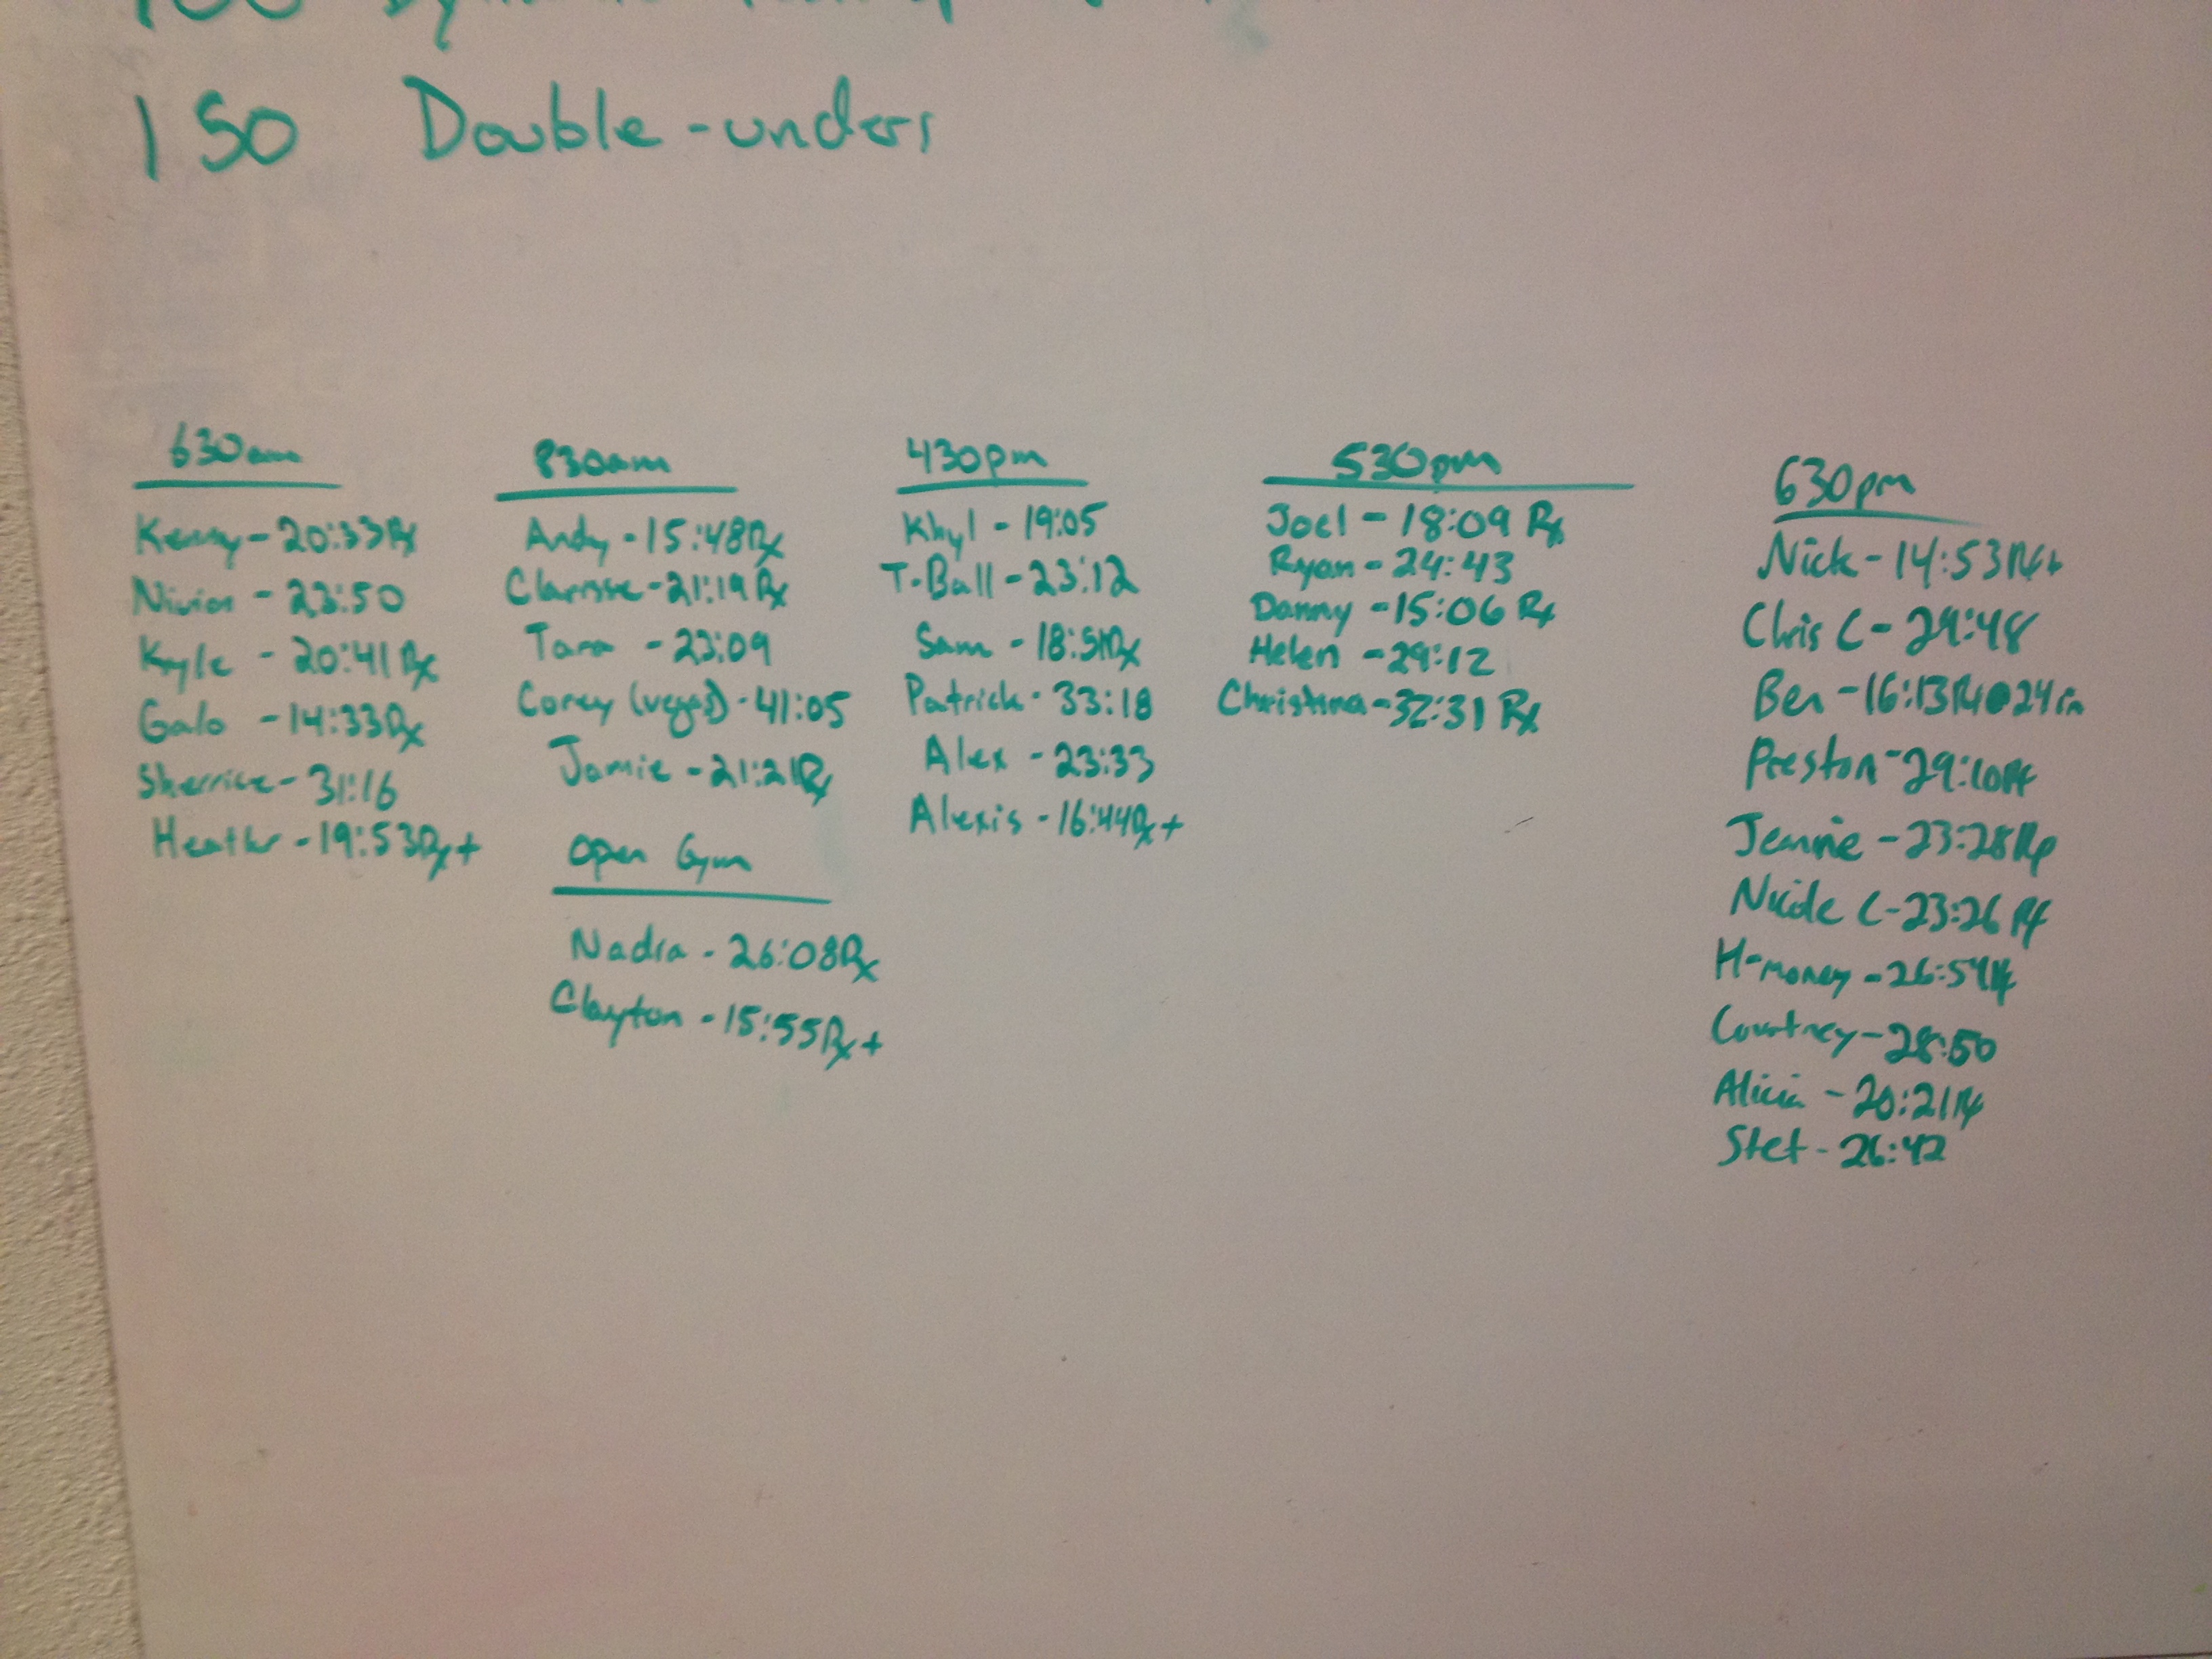 150 Double-unders
630am
Kenny - 20:33 Rx
Nivion - 23:50
Kyle - 20:41 Rx
Galo - 14:33 Rx
Sherrice - 31:16
Heathr - 19:53 Rx+
830am
Andy - 15:48 Rx
Clarisse - 21:19 Rx
Tara - 23:09
Corey (vegas) - 41:05
Jamie - 21:21 Rx
Open Gym
Nadia - 26:08 Rx
Clayton - 15:55 Rx+
430pm
Khyl - 19:05
T-Ball - 23:12
Sam - 18:51 Rx
Patrick - 33:18
Alex - 23:33
Alexis - 16:44 Rx+
530pm
Joel - 18:09 Rx
Ryan - 24:43
Danny - 15:06 Rx
Helen - 29:12
Christina - 32:31 Rx
630pm
Nick - 14:53 Rx+
Chris C - 29:48
Ben - 16:13 Rx @ 24in
Preston - 29:10 Rx
Jeannie - 23:28 Rx
Nicole C - 23:26 Rx
H-money - 26:54 Rx
Courtney - 28:50
Alicia - 20:21 Rx
Stet - 26:42